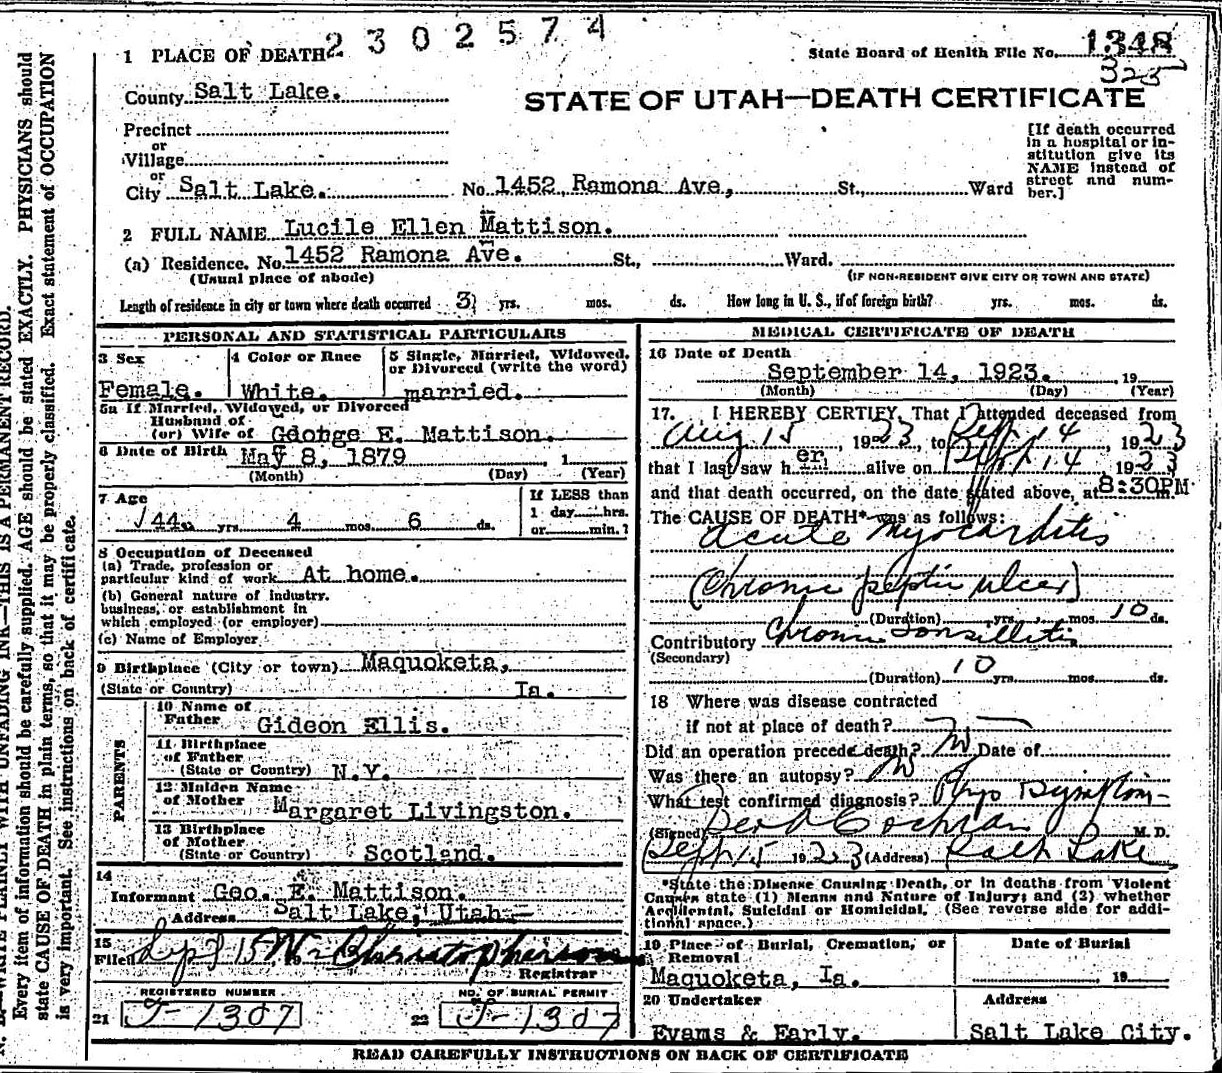 2302574
1 PLACE OF DEATH
State Board of Health File No. 1348
325
County Salt Lake.
STATE OF UTAH—DEATH CERTIFICATE
Precinct
or
Village
or
City Salt Lake. No. 1452 Ramona Ave, St., Ward
[If death occurred in a hospital or in-
stitution give its
NAME instead of
street and num-
ber.]
2 FULL NAME Lucile Ellen Mattison.
(a) Residence. No. 1452 Ramona Ave. St., Ward.
(Usual place of abode) (IF NON-RESIDENT GIVE CITY OR TOWN AND STATE)
Length of residence in city or town where death occurred 3 yrs. mos. ds. How long in U. S., if of foreign birth? yrs. mos. ds.
PERSONAL AND STATISTICAL PARTICULARS
3 Sex
Female.
4 Color or Race
White.
5 Single, Married, Widowed,
or Divorced (write the word)
married.
5a If Married, Widowed, or Divorced
Husband of
(or) Wife of George E. Mattison.
6 Date of Birth May 8, 1879, 1
(Month) (Day) (Year)
7 Age
44 yrs 4 mos 6 ds.
If LESS than
1 day hrs.
or min.?
8 Occupation of Deceased
(a) Trade, profession or
particular kind of work At home.
(b) General nature of industry,
business, or establishment in
which employed (or employer)
(c) Name of Employer
9 Birthplace (City or town) Maquoketa,
(State or Country) Ia.
PARENTS
10 Name of
Father Gideon Ellis.
11 Birthplace
of Father
(State or Country) N.Y.
12 Maiden Name
of Mother Margaret Livingston.
13 Birthplace
of Mother
(State or Country) Scotland.
14
Informant Geo. E. Mattison.
Address Salt Lake, Utah
15
Filed Sep 15 Christopherson
Registrar
REGISTERED NUMBER
21 J-1307
NO. OF BURIAL PERMIT
22 J-1307
MEDICAL CERTIFICATE OF DEATH
16 Date of Death
September 14, 1923. , 19
(Month) (Day) (Year)
17. I HEREBY CERTIFY, That I attended deceased from
Aug 15, 1923, to Sept 14, 1923
that I last saw her alive on Sept 14, 1923
and that death occurred, on the date stated above, at 8:30PM m.
The CAUSE OF DEATH* was as follows:
Acute Myocarditis
(Chronic peptic ulcer)
(Duration) yrs. mos. 10 ds.
Contributory Chronic Tonsillitis
(Secondary)
10
(Duration) yrs. mos. ds.
18 Where was disease contracted
if not at place of death?
Did an operation precede death? No Date of
Was there an autopsy? No
What test confirmed diagnosis? Phys Symptom
(Signed) Cochran M. D.
Sept 15 1923 (Address) Salt Lake
*State the Disease Causing Death, or in deaths from Violent
Causes state (1) Means and Nature of Injury; and (2) whether
Accidental, Suicidal or Homicidal. (See reverse side for addi-
tional space.)
19 Place of Burial, Cremation, or
Removal
Maquoketa, Ia.
Date of Burial
19
20 Undertaker
Evans & Early.
Address
Salt Lake City.
READ CAREFULLY INSTRUCTIONS ON BACK OF CERTIFICATE
N. B.—WRITE PLAINLY WITH UNFADING INK—THIS IS A PERMANENT RECORD.
Every item of information should be carefully supplied. AGE should be stated EXACTLY. PHYSICIANS should
state CAUSE OF DEATH in plain terms, so that it may be properly classified. Exact statement of OCCUPATION
is very important. See instructions on back of certificate.